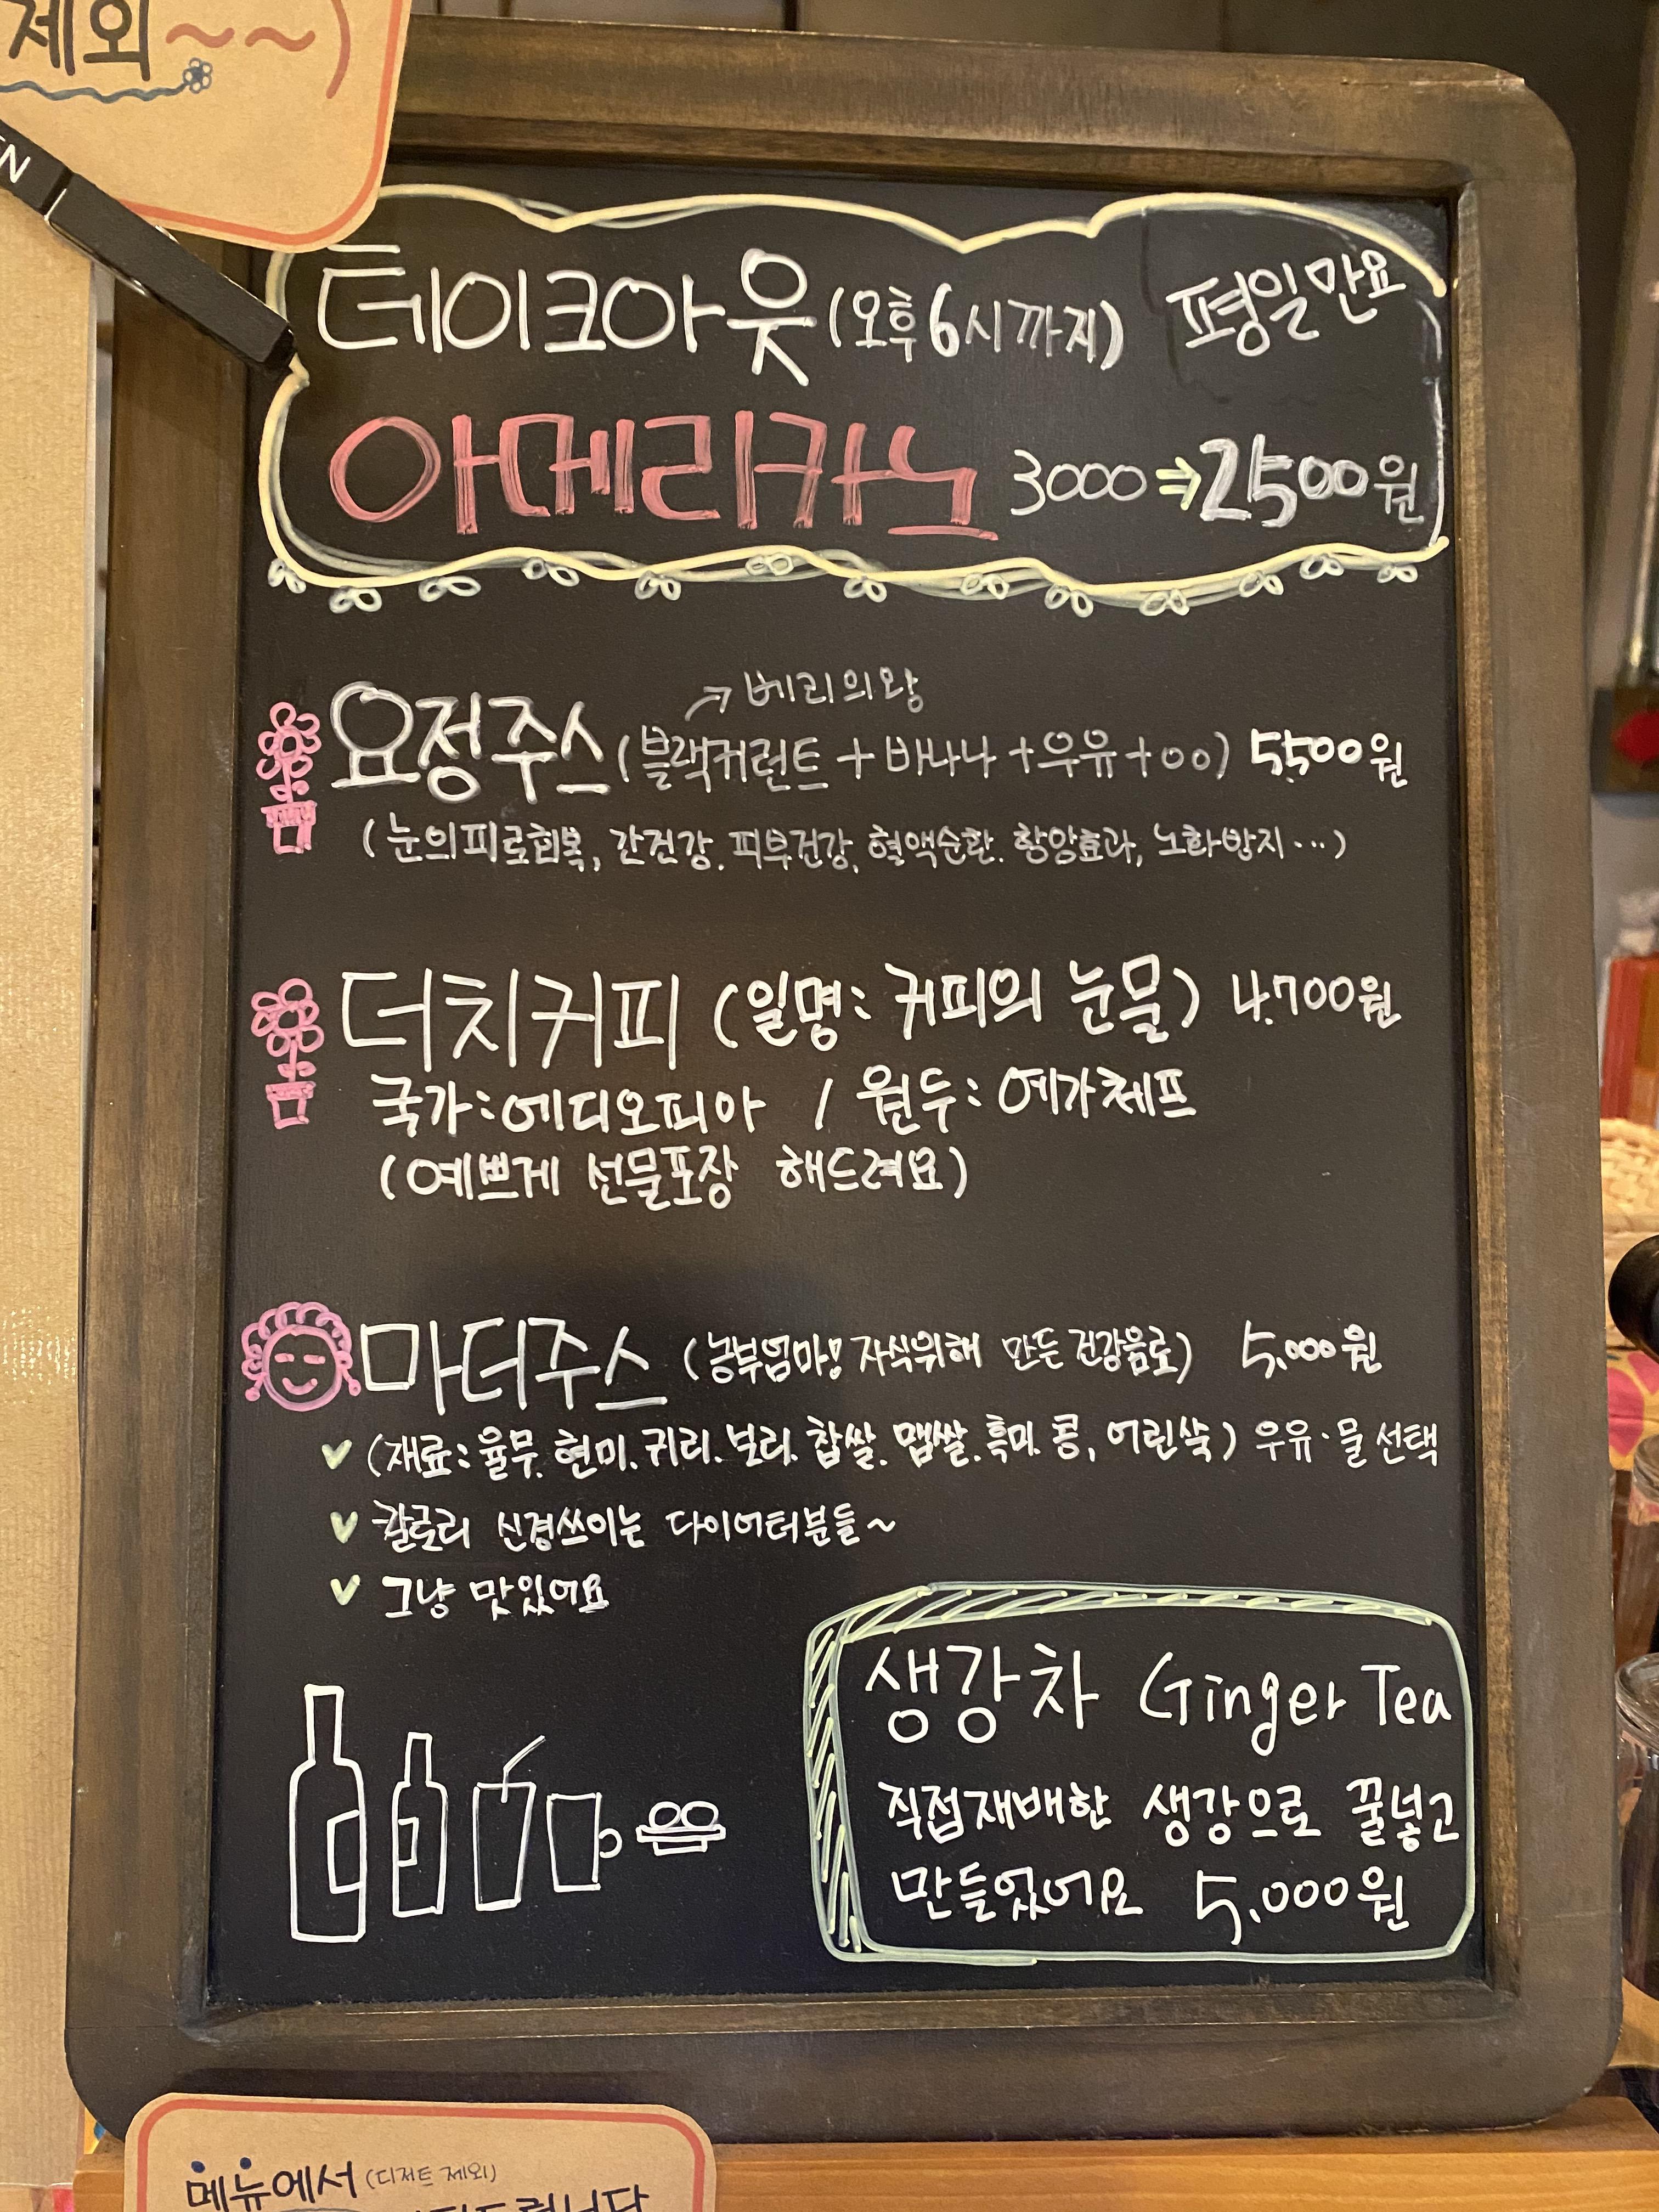 제외~~)
EN
테이크아웃 (오후6시까지) 평일만요
아메리카노 3000 ⇒ 2500원
↗ 베리의왕
요정주스 (블랙커런트 + 바나나 + 우유 + oo) 5,500원
(눈의피로회복, 간건강, 피부건강, 혈액순환. 항암효과, 노화방지 ...)
더치커피 (일명: 커피의 눈물) 4,700원
국가:에디오피아 / 원두: 예가체프
(예쁘게 선물포장 해드려요)
마더주스 (농부엄마! 자식위해 만든 건강음료) 5,000원
(재료: 율무. 현미. 귀리. 보리. 찹쌀. 맵쌀. 흑미. 콩, 어린쑥) 우유·물 선택
칼로리 신경쓰이는 다이어터분들~
그냥 맛있어요
생강차 Ginger Tea
직접재배한 생강으로 꿀넣고
만들었어요 5,000원
메뉴에서 (디저트 제외)